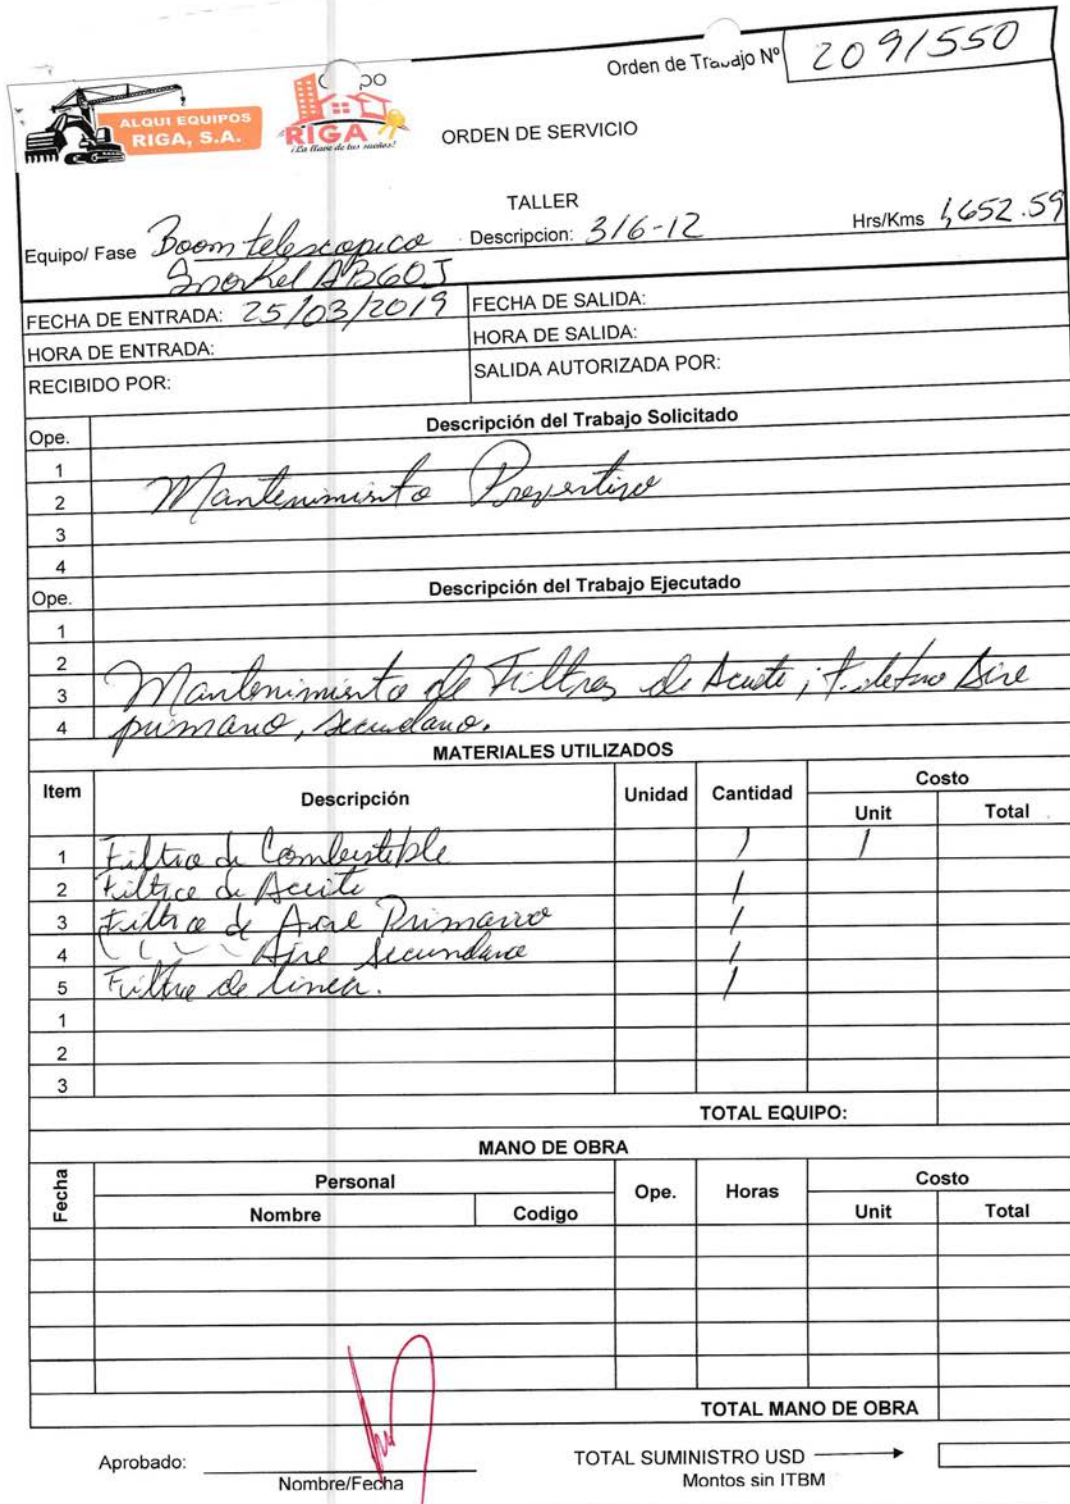 Orden de Trabajo Nº 2091550
ALQUI EQUIPOS
RIGA, S.A.
RIGA
¡La llave de tus sueños!
ORDEN DE SERVICIO
TALLER
Equipo/ Fase Boom telescopico Descripcion: 316-12 Hrs/Kms 1,652.59
Snorkel AB60J
FECHA DE ENTRADA: 25/03/2019 FECHA DE SALIDA:
HORA DE ENTRADA: HORA DE SALIDA:
RECIBIDO POR: SALIDA AUTORIZADA POR:
Ope. Descripción del Trabajo Solicitado
1
2 Mantenimiento Preventivo
3
4
Ope. Descripción del Trabajo Ejecutado
1
2
3 Mantenimiento de Filtros de Aceite; Aire
4 primario, secundario.
MATERIALES UTILIZADOS
Item Descripción Unidad Cantidad Costo
Unit Total
1 Filtro de Combustible 1 1
2 Filtro de Aceite 1
3 Filtro de Aire Primario 1
4 Aire Secundario 1
5 Filtro de linea. 1
1
2
3
TOTAL EQUIPO:
MANO DE OBRA
Fecha Personal Ope. Horas Costo
Nombre Codigo Unit Total
TOTAL MANO DE OBRA
Aprobado: TOTAL SUMINISTRO USD
Nombre/Fecha Montos sin ITBM